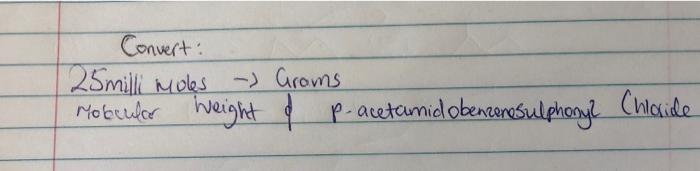 Convert:
25milli moles -> Grams
Molecular Weight of p-acetamidobenzenesulphonyl Chloride